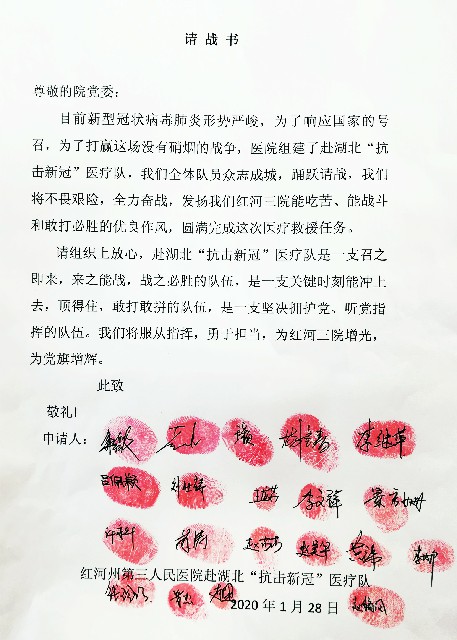 请战书
尊敬的院党委：
目前新型冠状病毒肺炎形势严峻，为了响应国家的号
召，为了打赢这场没有硝烟的战争，医院组建了赴湖北“抗
击新冠”医疗队，我们全体队员众志成城，踊跃请战，我们
将不畏艰险，全力奋战，发扬我们红河三院能吃苦、能战斗
和敢打必胜的优良作风，圆满完成这次医疗救援任务。
请组织上放心，赴湖北“抗击新冠”医疗队是一支召之
即来，来之能战，战之必胜的队伍，是一支关键时刻能冲上
去，顶得住，敢打敢拼的队伍，是一支坚决拥护党、听党指
挥的队伍。我们将服从指挥，勇于担当，为红河三院增光，
为党旗增辉。
此致
敬礼！
申请人：
李继华
红河州第三人民医院赴湖北“抗击新冠”医疗队
2020年1月28日